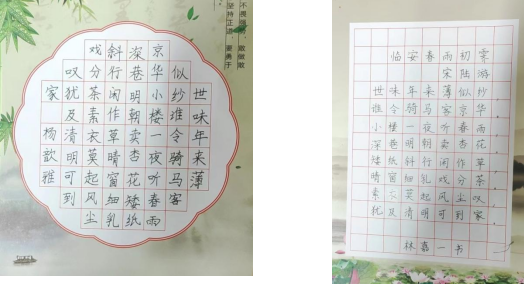 世味年来薄
似纱谁令骑马客
京华小楼一夜听春雨
深巷明朝卖杏花矮纸
斜行闲作草晴窗细乳
戏分茶素衣莫起风尘
叹犹及清明可到
家 杨歆雅
不畏 敢做敢
坚持正道 要勇于
临安春雨初霁
宋陆游
世味年来薄似纱
谁令骑马客京华
小楼一夜听春雨
深巷明朝卖杏花
矮纸斜行闲作草
晴窗细乳戏分茶
素衣莫起风尘叹
犹及清明可到家
林嘉一书